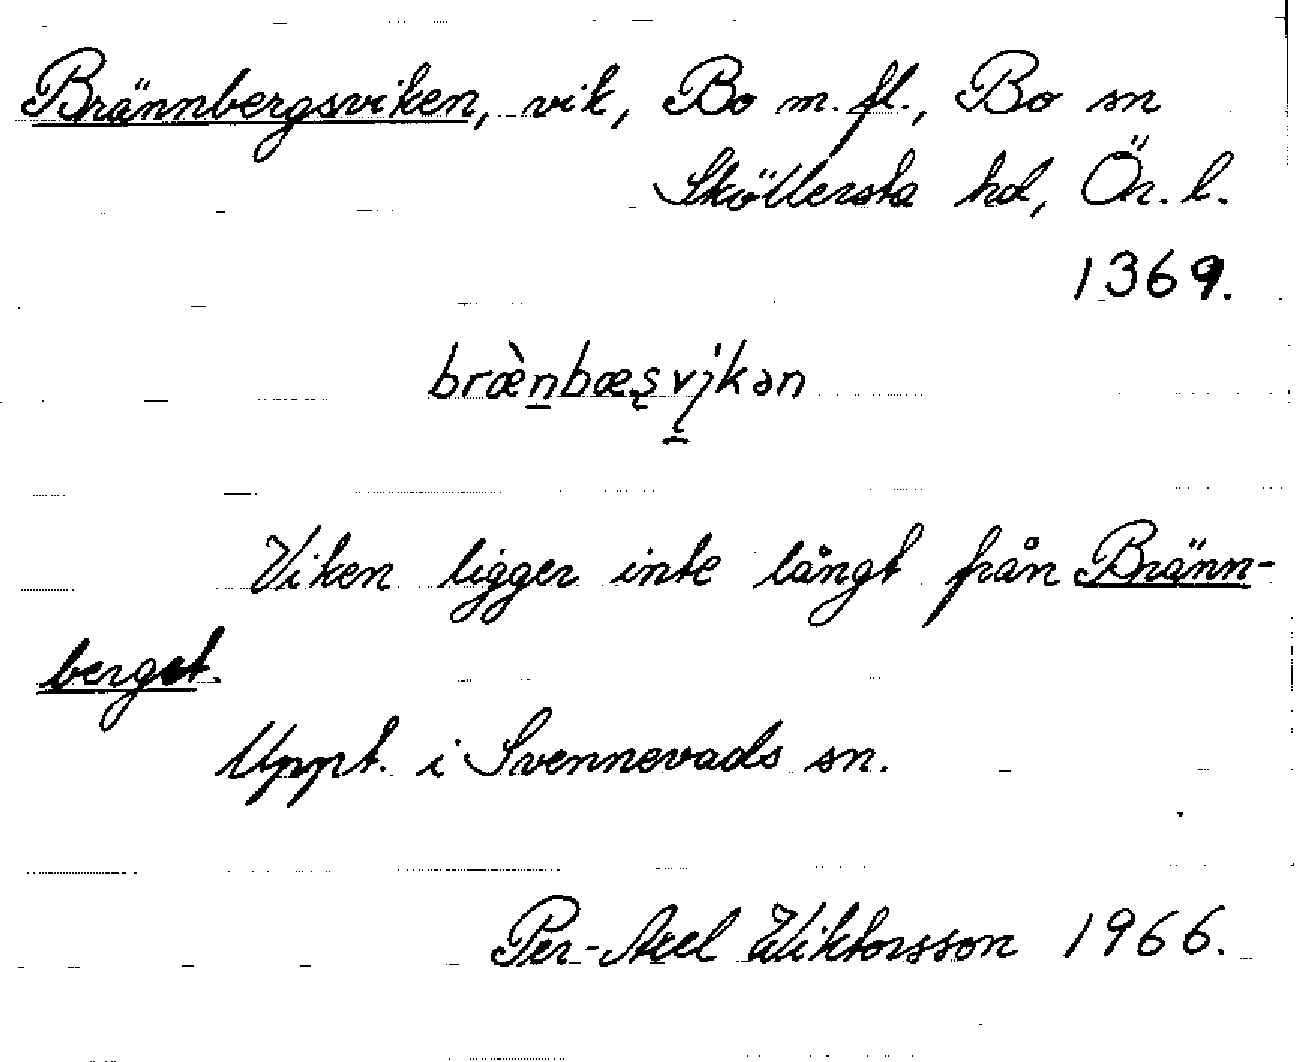 Brännbergsviken, vik, Bo m. fl., Bo sn
Sköllersta hd, Ör. l.
1369.
bræ̀n̲bæʂvi̯kən
Viken ligger inte långt från Bränn-
berget.
Uppt. i Svennevads sn.
Per-Axel Wiktorsson 1966.